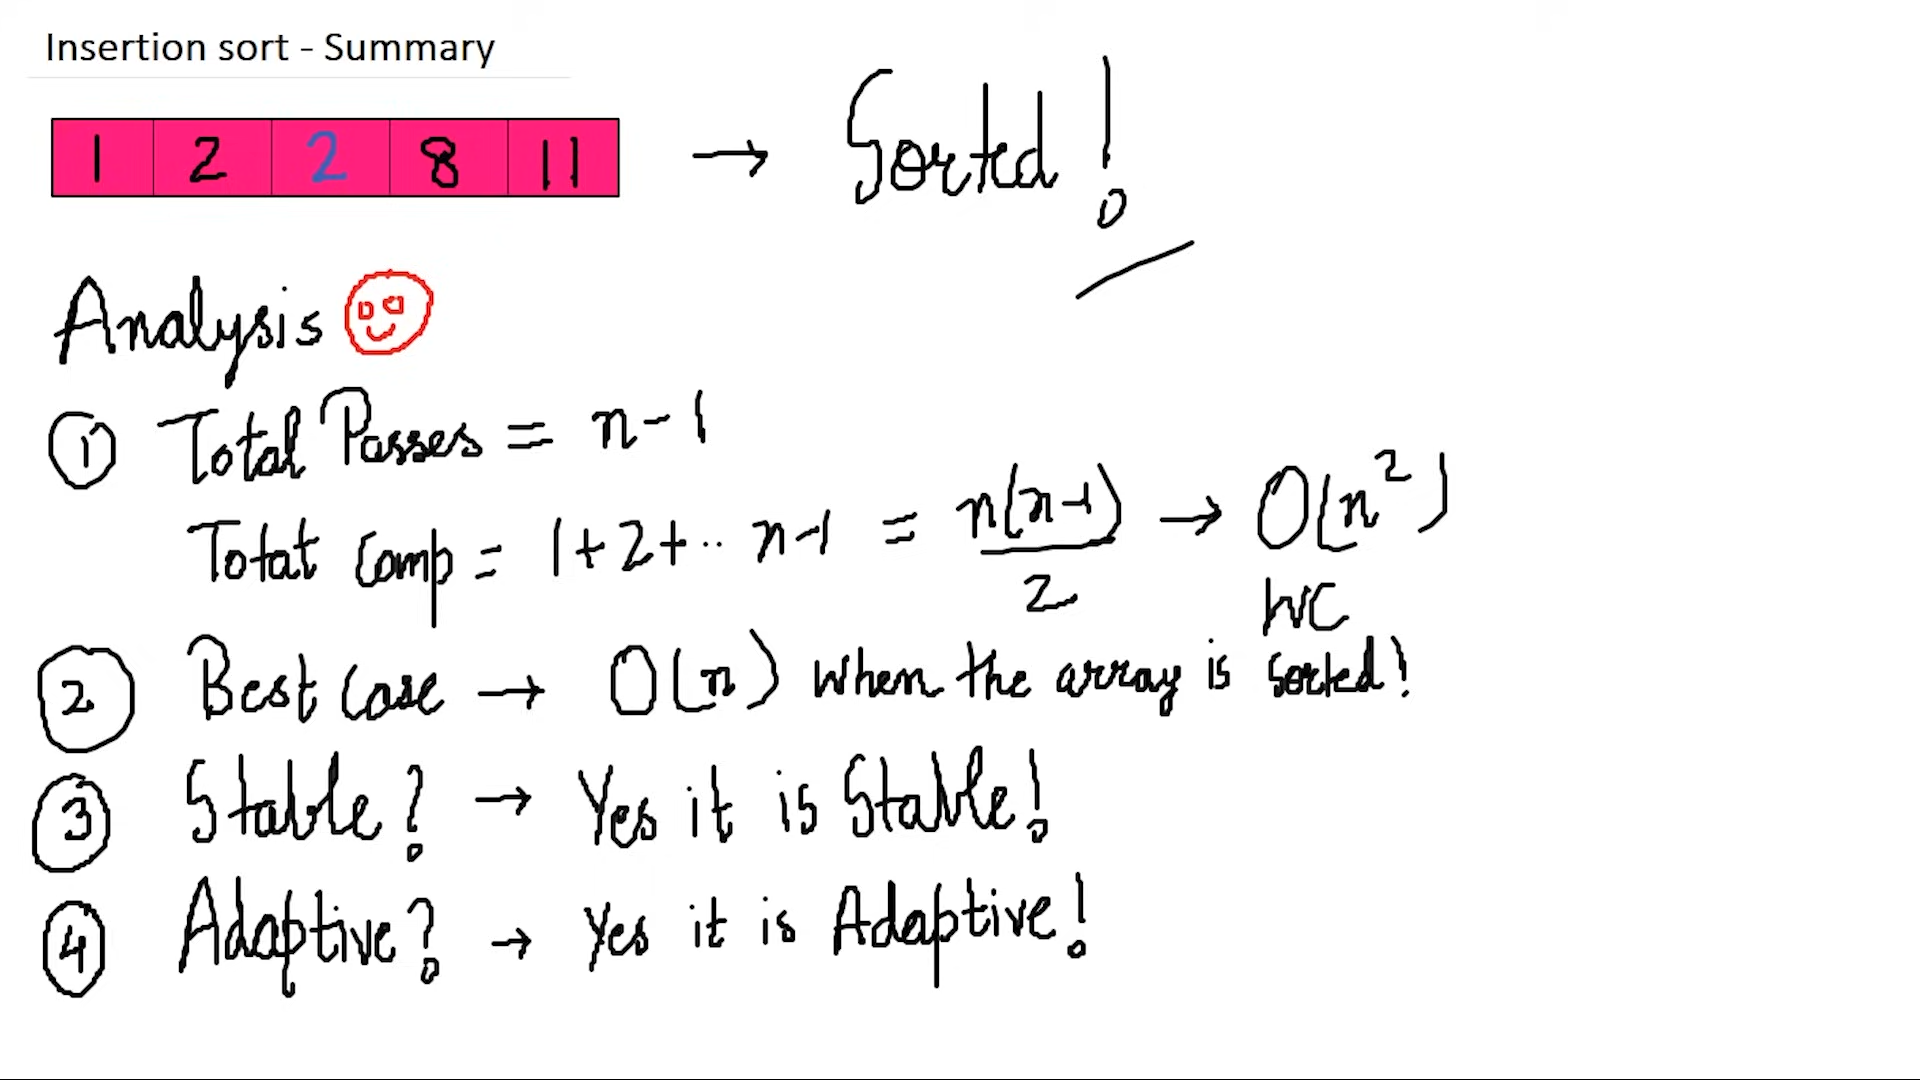 Insertion sort - Summary
1 2 2 8 11 → Sorted!
Analysis
① Total Passes = n-1
Total Comp = 1+2+.. n-1 = n(n-1)/2 → O(n²)
WC
② Best Case → O(n) when the array is Sorted!
③ Stable? → Yes it is Stable!
④ Adaptive? → Yes it is Adaptive!